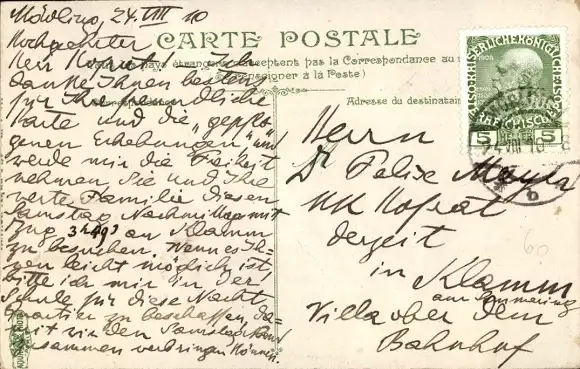 Mödling, 24. VIII 10
Hochgeehrter
Herr Hofrath! Ich
danke Ihnen bestens
für Ihre freundliche
Karte und die „gepflo
genen Erhebungen“ und
werde mir die Freiheit
nehmen, Sie und Ihre
werte Familie diesen
Samstag Nachmittag mit
Zug 3h 49 an Klamm
zu besuchen. Wenn es Ih-
nen leicht möglich ist,
bitte ich mir in der
Schule für diese Nacht
Quartier zu beschaffen, da-
mit wir den Samstag Abend
zusammen verbringen können.
CARTE POSTALE
pays étrangers acceptent pas la Correspondance au
(Renseigner à la Poste)
Correspondance
Adresse du destinataire
KAISERLICHEKÖNIGLICHE
ÖSTERREICHISCHE POST
5 HELLER 5
24 VIII 10
Herrn
Dr Felix Mayer
KK Hofrat
derzeit
in Klamm
am Semmering
Villa ober dem
Bahnhof
60